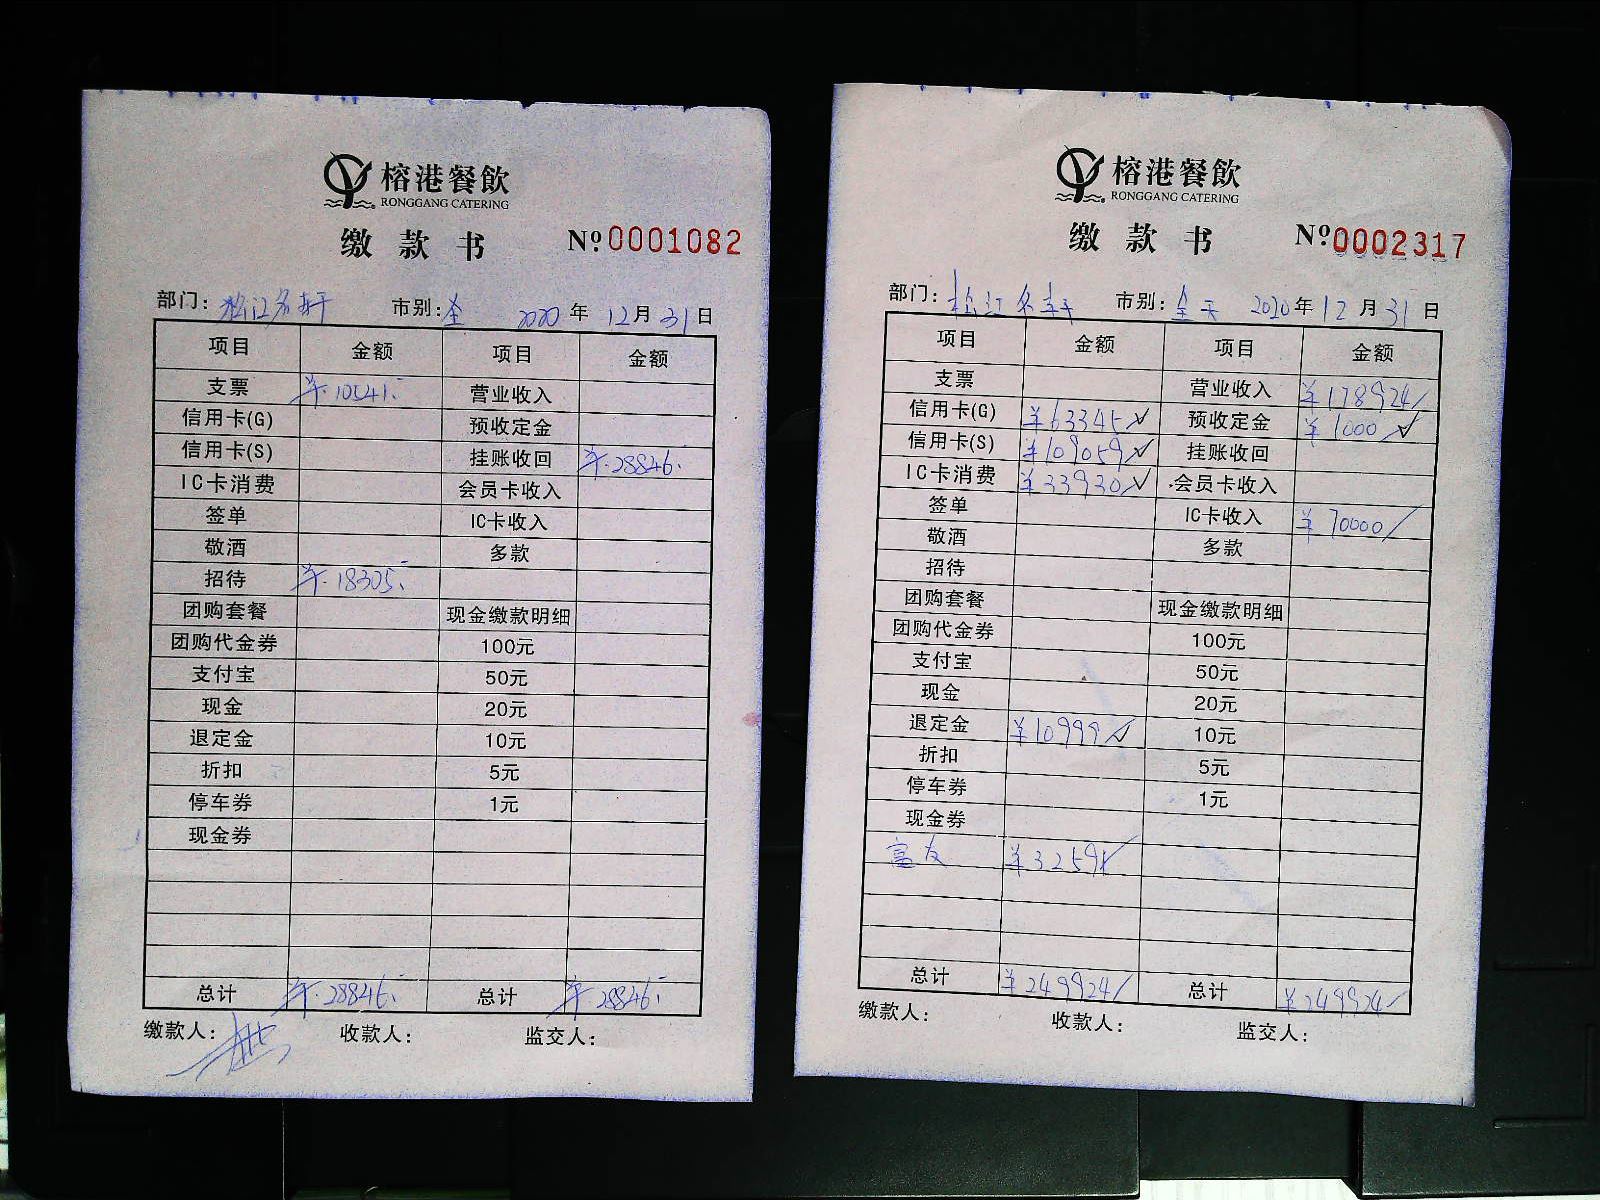 榕港餐飲
RONGGANG CATERING
缴款书 Nº0001082
部门: 松江名轩 市别: 全 2020年12月31日
项目 金额 项目 金额
支票 ¥10541. 营业收入
信用卡(G) 预收定金
信用卡(S) 挂账收回 ¥28846.
IC卡消费 会员卡收入
签单 IC卡收入
敬酒 多款
招待 ¥18305.
团购套餐 现金缴款明细
团购代金券 100元
支付宝 50元
现金 20元
退定金 10元
折扣 5元
停车券 1元
现金券
总计 ¥28846. 总计 ¥28846.
缴款人: 收款人: 监交人:
榕港餐飲
RONGGANG CATERING
缴款书 Nº0002317
部门: 松江名轩 市别: 全天 2020年12月31日
项目 金额 项目 金额
支票 营业收入 ¥178924/
信用卡(G) ¥63345✓ 预收定金 ¥1000✓
信用卡(S) ¥109059✓ 挂账收回
IC卡消费 ¥33930✓ 会员卡收入
签单 IC卡收入 ¥70000/
敬酒 多款
招待
团购套餐 现金缴款明细
团购代金券 100元
支付宝 50元
现金 20元
退定金 ¥10999✓ 10元
折扣 5元
停车券 1元
现金券
富友 ¥32591✓
总计 ¥249924/ 总计 ¥249924/
缴款人: 收款人: 监交人: